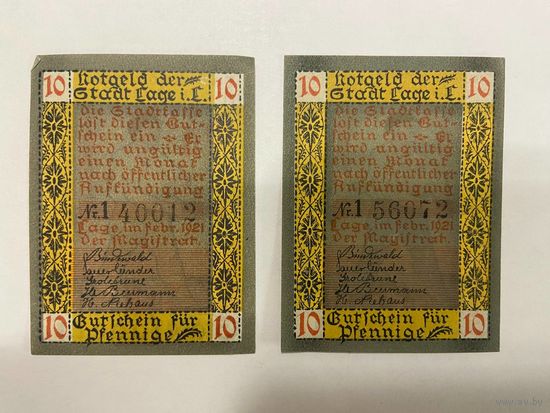 10 Notgeld der 10
Stadt Lage i. L
Die Stadtkasse
löst diesen Gut-
schein ein - Er
wird ungültig
einen Monat
nach öffentlicher
Aufkündigung
Nr. 140012
Lage, im Febr. 1921
Der Magistrat.
10 Gutschein für 10
Pfennige
10 Notgeld der 10
Stadt Lage i. L
Die Stadtkasse
löst diesen Gut-
schein ein - Er
wird ungültig
einen Monat
nach öffentlicher
Aufkündigung
Nr. 156072
Lage, im Febr. 1921
Der Magistrat.
10 Gutschein für 10
Pfennige